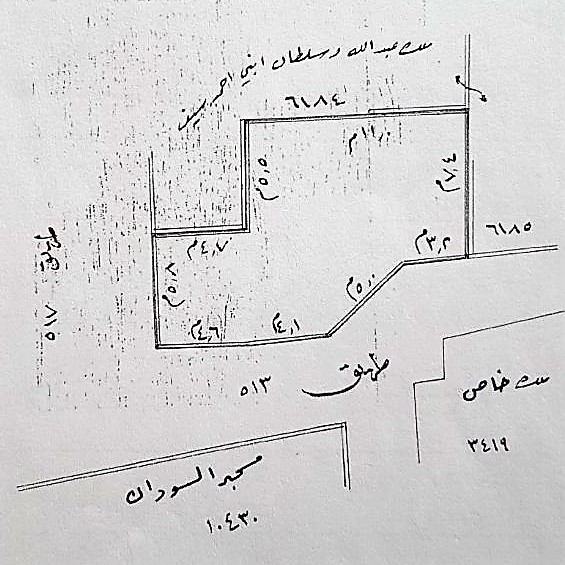 ملك عبدالله وسلطان ابني احمد سيف
٦١٨٤
١١٫٠م
٥٫٥م
٧٫٤م
٦١٨٥
٣٫٢م
٤٫٧م
طريق
٥١٧
٥٫٨م
٥٫٠م
٤٫٦م
٤٫١م
طريق
٥١٣
ملك خاص
٣٤١٩
مسجد السودان
١٠٤٣٠